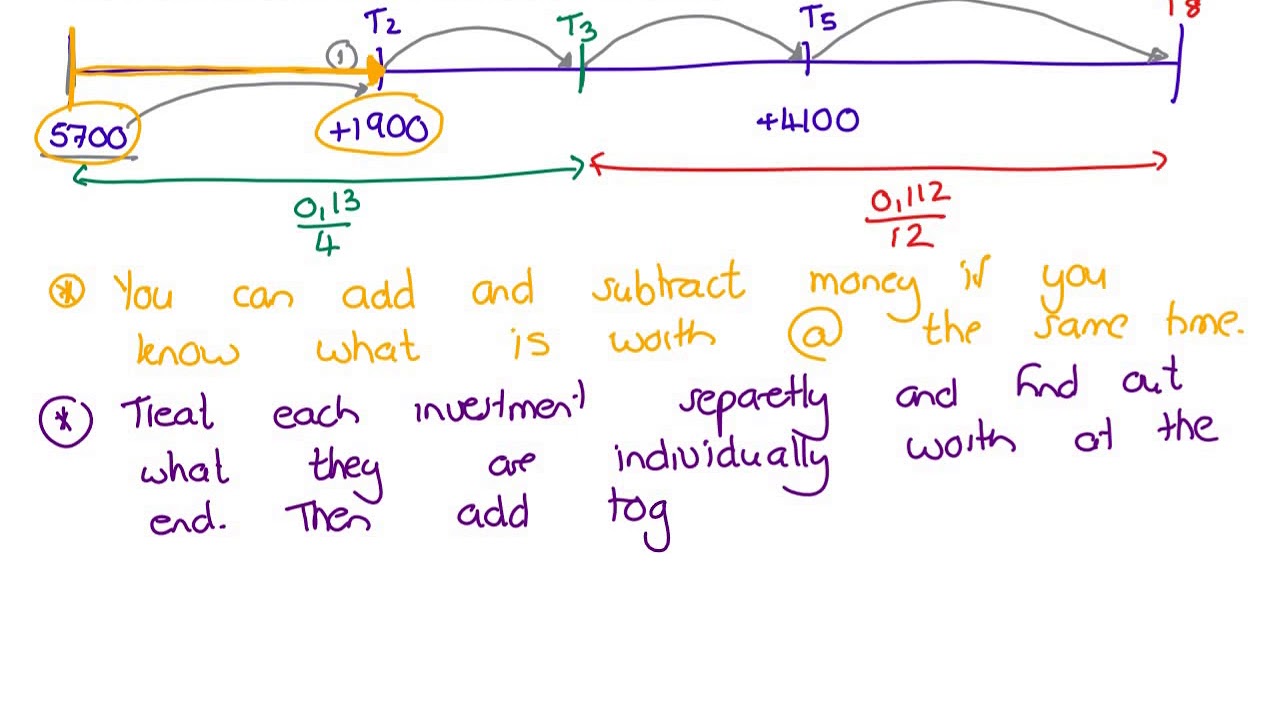 T2 T3 T5 T8
①
5700 +1900 +4100
0,13
4
0,112
12
* You can add and subtract money if you
know what is worth @ the same time.
* Treat each investment separetly and find out
what they are individually worth at the
end. Then add tog